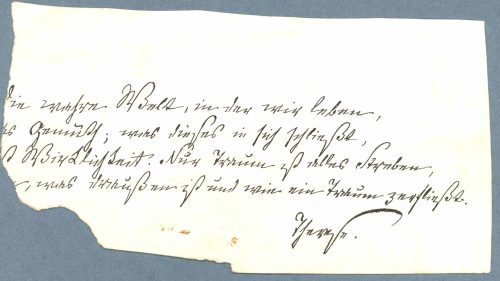 die wahre Welt, in der wir leben,
as Gemüth; was dieses in sich schließt,
st Wirklichkeit. Nur Traum ist alles Streben,
was draußen ist und wie ein Traum zerfließt.
Therese.